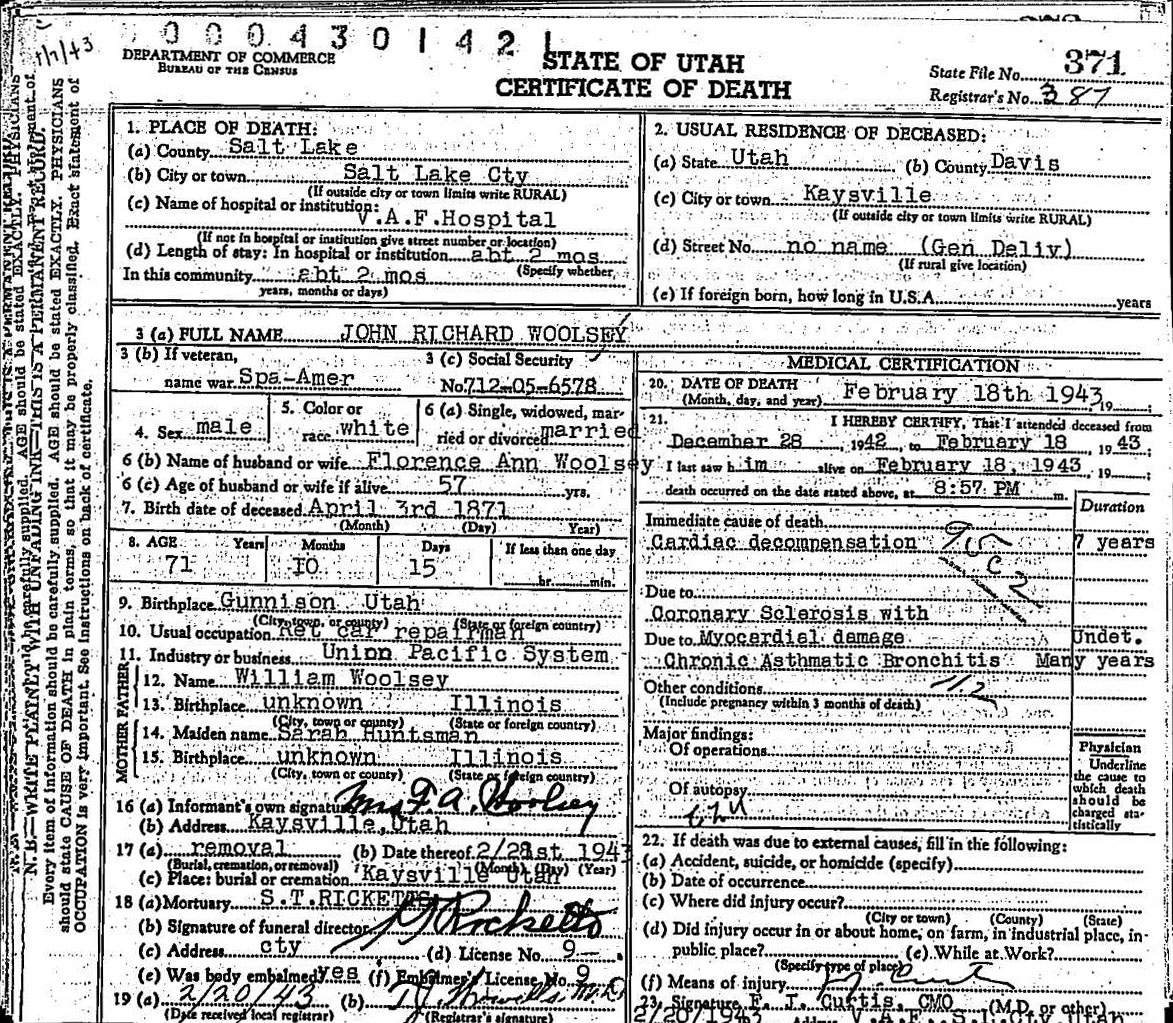 1/7/43
0004301421
DEPARTMENT OF COMMERCE
BUREAU OF THE CENSUS
STATE OF UTAH
CERTIFICATE OF DEATH
State File No. 371
Registrar's No. 387
N. B.—WRITE PLAINLY WITH UNFADING INK—THIS IS A PERMANENT RECORD.
Every item of information should be carefully supplied. AGE should be stated EXACTLY. PHYSICIANS
should state CAUSE OF DEATH in plain terms, so that it may be properly classified. Exact statement of
OCCUPATION is very important. See instructions on back of certificate.
1. PLACE OF DEATH:
(a) County Salt Lake
(b) City or town Salt Lake Cty
(If outside city or town limits write RURAL)
(c) Name of hospital or institution:
V.A.F.Hospital
(If not in hospital or institution give street number or location)
(d) Length of stay: In hospital or institution abt 2 mos
(Specify whether,
In this community abt 2 mos
years, months or days)
2. USUAL RESIDENCE OF DECEASED:
(a) State Utah (b) County Davis
(c) City or town Kaysville
(If outside city or town limits write RURAL)
(d) Street No. no name (Gen Deliv)
(If rural give location)
(e) If foreign born, how long in U.S.A. years
3 (a) FULL NAME JOHN RICHARD WOOLSEY
3 (b) If veteran,
name war Spa-Amer
3 (c) Social Security
No. 712-05-6578
4. Sex male
5. Color or
race white
6 (a) Single, widowed, mar-
ried or divorced married
6 (b) Name of husband or wife Florence Ann Woolsey
6 (c) Age of husband or wife if alive 57 yrs.
7. Birth date of deceased April 3rd 1871
(Month) (Day) Year)
8. AGE Years Months Days If less than one day
71 10 15 hr. min.
9. Birthplace Gunnison Utah
(City, town, or county) (State or foreign country)
10. Usual occupation Ret car repairman
11. Industry or business Union Pacific System
FATHER
12. Name William Woolsey
13. Birthplace unknown Illinois
(City, town or county) (State or foreign country)
MOTHER
14. Maiden name Sarah Huntsman
15. Birthplace unknown Illinois
(City, town or county) (State or foreign country)
16 (a) Informant's own signature Mrs F. A. Woolsey
(b) Address Kaysville,Utah
17 (a) removal (b) Date thereof 2/21st 1943
(Burial, cremation, or removal) (Month) (Day) (Year)
(c) Place: burial or cremation Kaysville Utah
18 (a) Mortuary S.T.RICKETTS
(b) Signature of funeral director Ricketts
(c) Address cty (d) License No. 9
(e) Was body embalmed yes (f) Embalmer's License No. 9
19 (a) 2/20/43 (b) M.D.
(Date received local registrar) (Registrar's signature)
MEDICAL CERTIFICATION
20. DATE OF DEATH
(Month, day, and year) February 18th 1943, 19
21. I HEREBY CERTIFY, That I attended deceased from
December 28 1942, to February 18, 1943
I last saw him alive on February 18, 1943, 19
death occurred on the date stated above, at 8:57 PM m.
Duration
Immediate cause of death
Cardiac decompensation 7 years
Due to
Coronary Sclerosis with
Due to Myocardial damage Undet.
Chronic Asthmatic Bronchitis Many years
Other conditions
(Include pregnancy within 3 months of death)
Major findings:
Of operations
Of autopsy
Physician
Underline
the cause to
which death
should be
charged sta-
tistically
22. If death was due to external causes, fill in the following:
(a) Accident, suicide, or homicide (specify)
(b) Date of occurrence
(c) Where did injury occur?
(City or town) (County) (State)
(d) Did injury occur in or about home, on farm, in industrial place, in
public place? (e) While at Work?
(Specify type of place)
(f) Means of injury
23. Signature F. J. Curtis, CMO (M.D. or other)
2/20/1943 Address V.A.F., S.L.Cty Utah